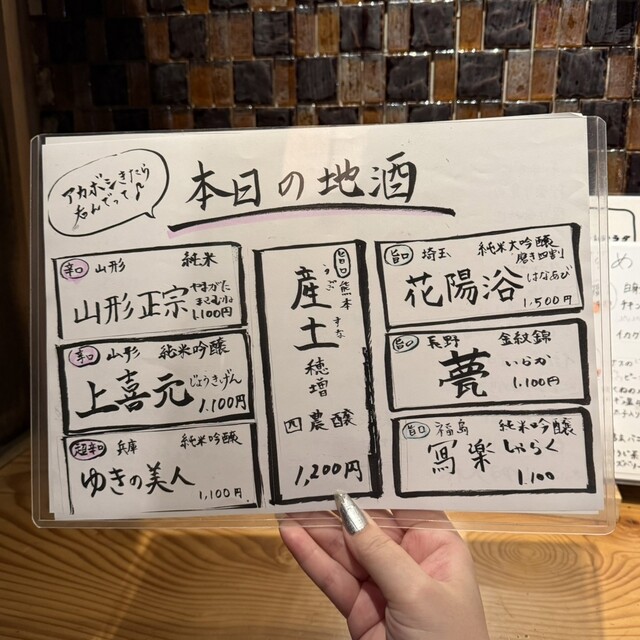 本日の地酒
アカボシきたら
なんでって♪
辛口 山形 純米
山形正宗
やまがた
まさむね
1.100円
辛口 山形 純米吟醸
上喜元
じょうきげん
1.100円
超辛口 兵庫 純米吟醸
ゆきの美人
1,100円
旨口 熊本
産土
うぶすな
穂増
四農醸
1,200円
旨口 埼玉 純米大吟醸
磨き四割
花陽浴
はなあび
1.500円
旨口 長野 金紋錦
甍
いらか
1.100円
旨口 福島 純米吟醸
写楽 しゃらく
1.100
め